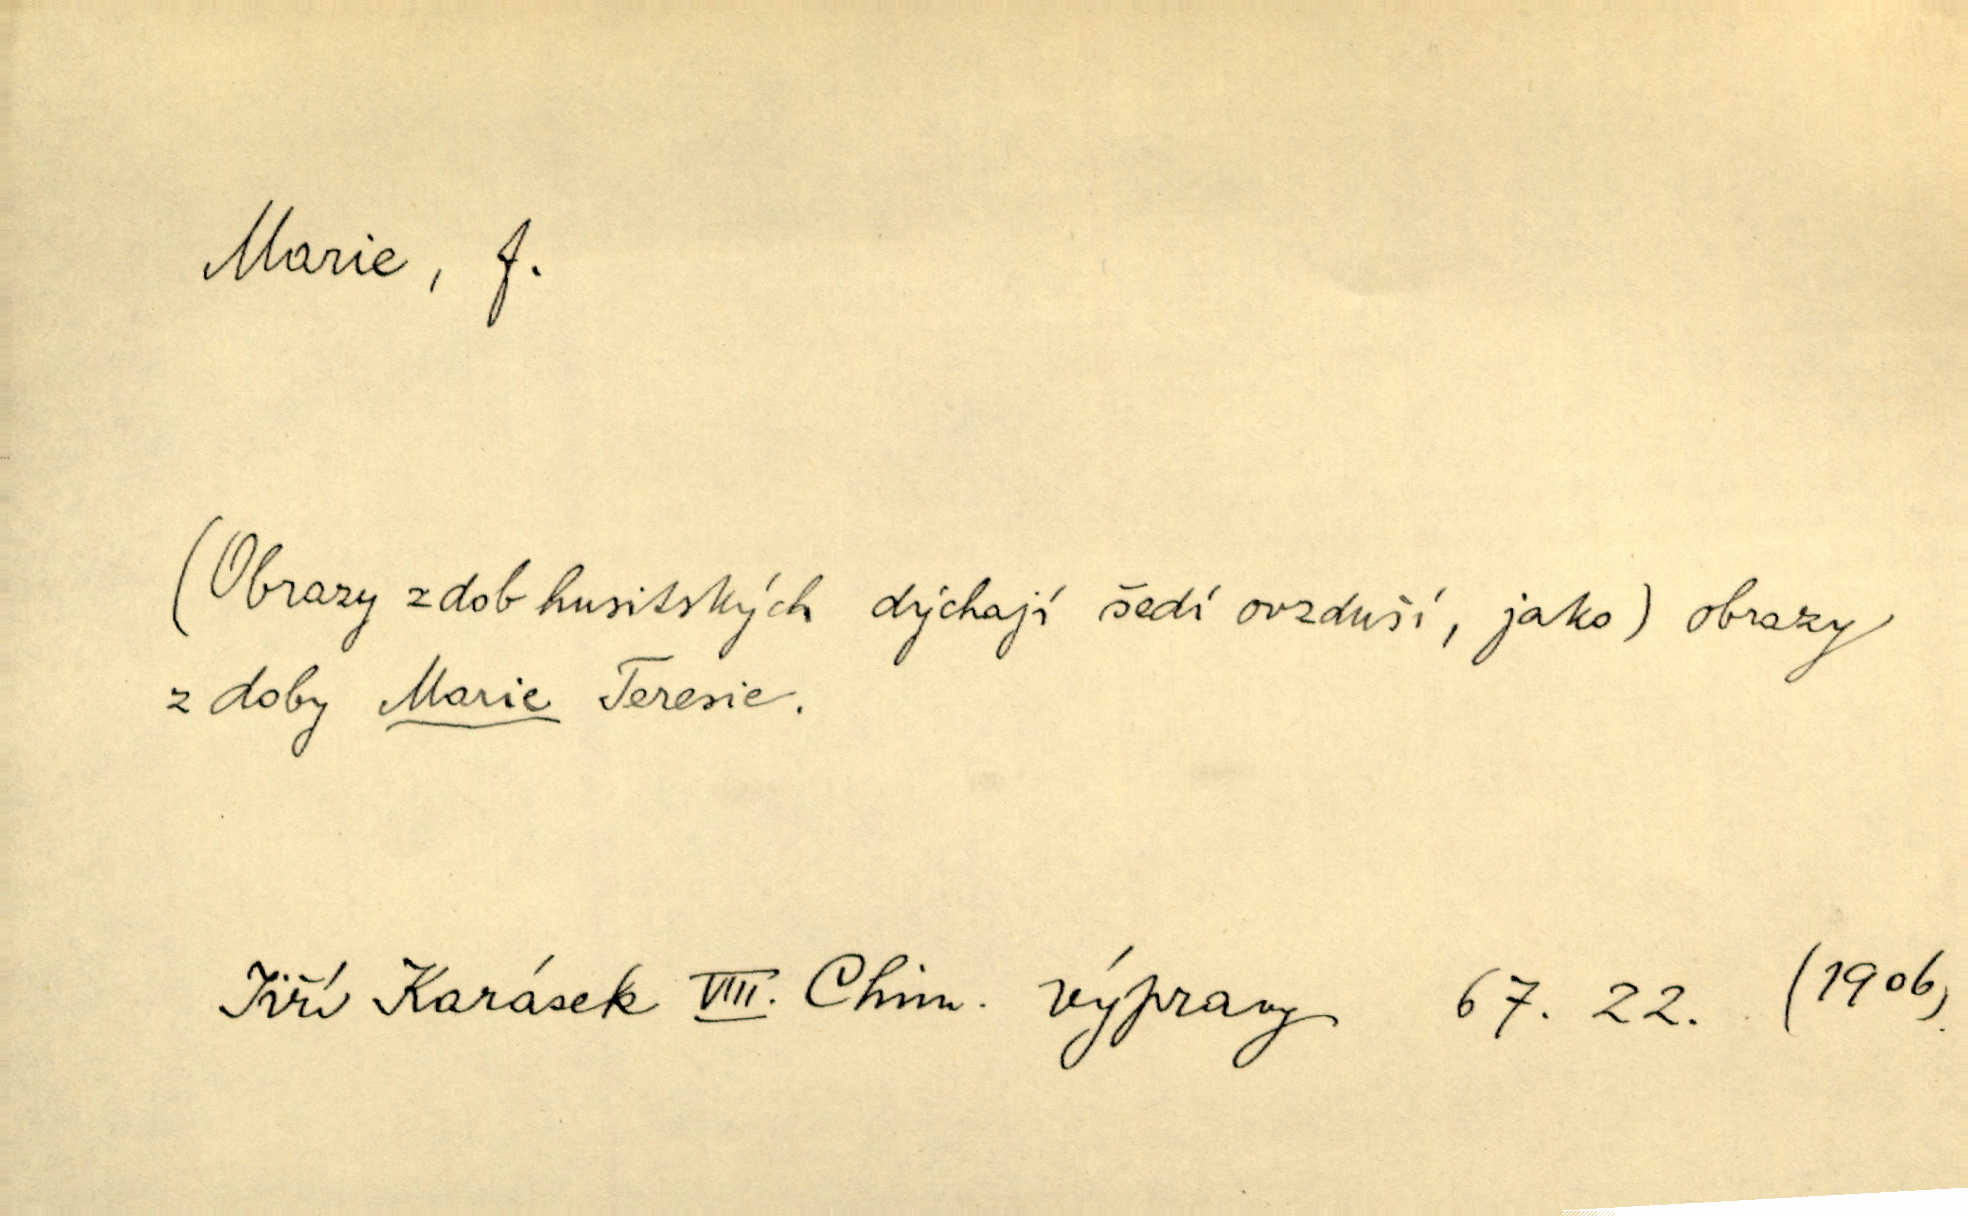 Marie, f.
(Obrazy z dob husitských dýchají šedí ovzduší, jako) obrazy
z doby Marie Teresie.
Jiří Karásek VIII. Chim. výpravy 67. 22. (1906)